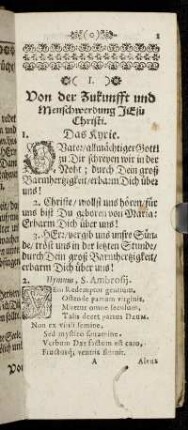 ( o )
I.
Von der Zukunfft und
Menschwerdung JEsu
Christi.
1. Das Kyrie.
O Vater/allmächtiger Gott!
zu Dir schreyen wir in der
Noht; durch Dein groß
Barmhertzigkeit/erbarm Dich über
uns!
2. Christe/wollst uns hören/für
uns bist Du geboren von Maria:
Erbarm Dich über uns!
3. HErr/vergib uns unsre Sün-
de/tröst uns in der letzten Stunde/
durch Dein groß Barmhertzigkeit/
erbarm Dich über uns!
2. Hymnus, S. Ambrosij.
VEni Redemptor gentium,
Ostende partum virginis,
Miretur omne seculum,
Talis decet partus DEUM.
Non ex virili semine,
Sed mystico spiramine,
Verbum DEI factum est caro,
Fructusq; ventris floruit.
A Alvus